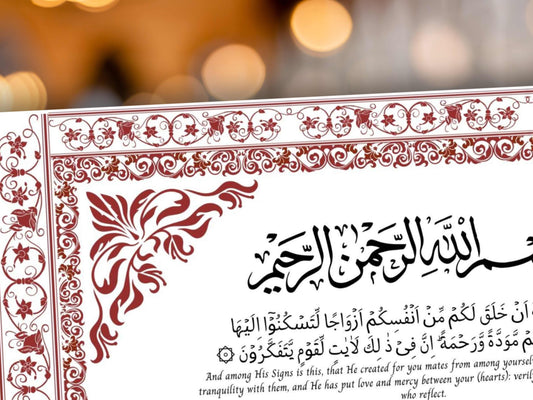 الله الرحمن الرحيم
اَنْ خَلَقَ لَكُمْ مِّنْ اَنْفُسِكُمْ اَزْوَاجًا لِّتَسْكُنُوْۤا اِلَيْهَا
مَّوَدَّةً وَّرَحْمَةً ؕ اِنَّ فِىْ ذٰ لِكَ لَاٰيٰتٍ لِّقَوْمٍ يَّتَفَكَّرُوْنَ
And among His Signs is this, that He created for you mates from among yourselve
tranquility with them, and He has put love and mercy between your (hearts): verily
who reflect.